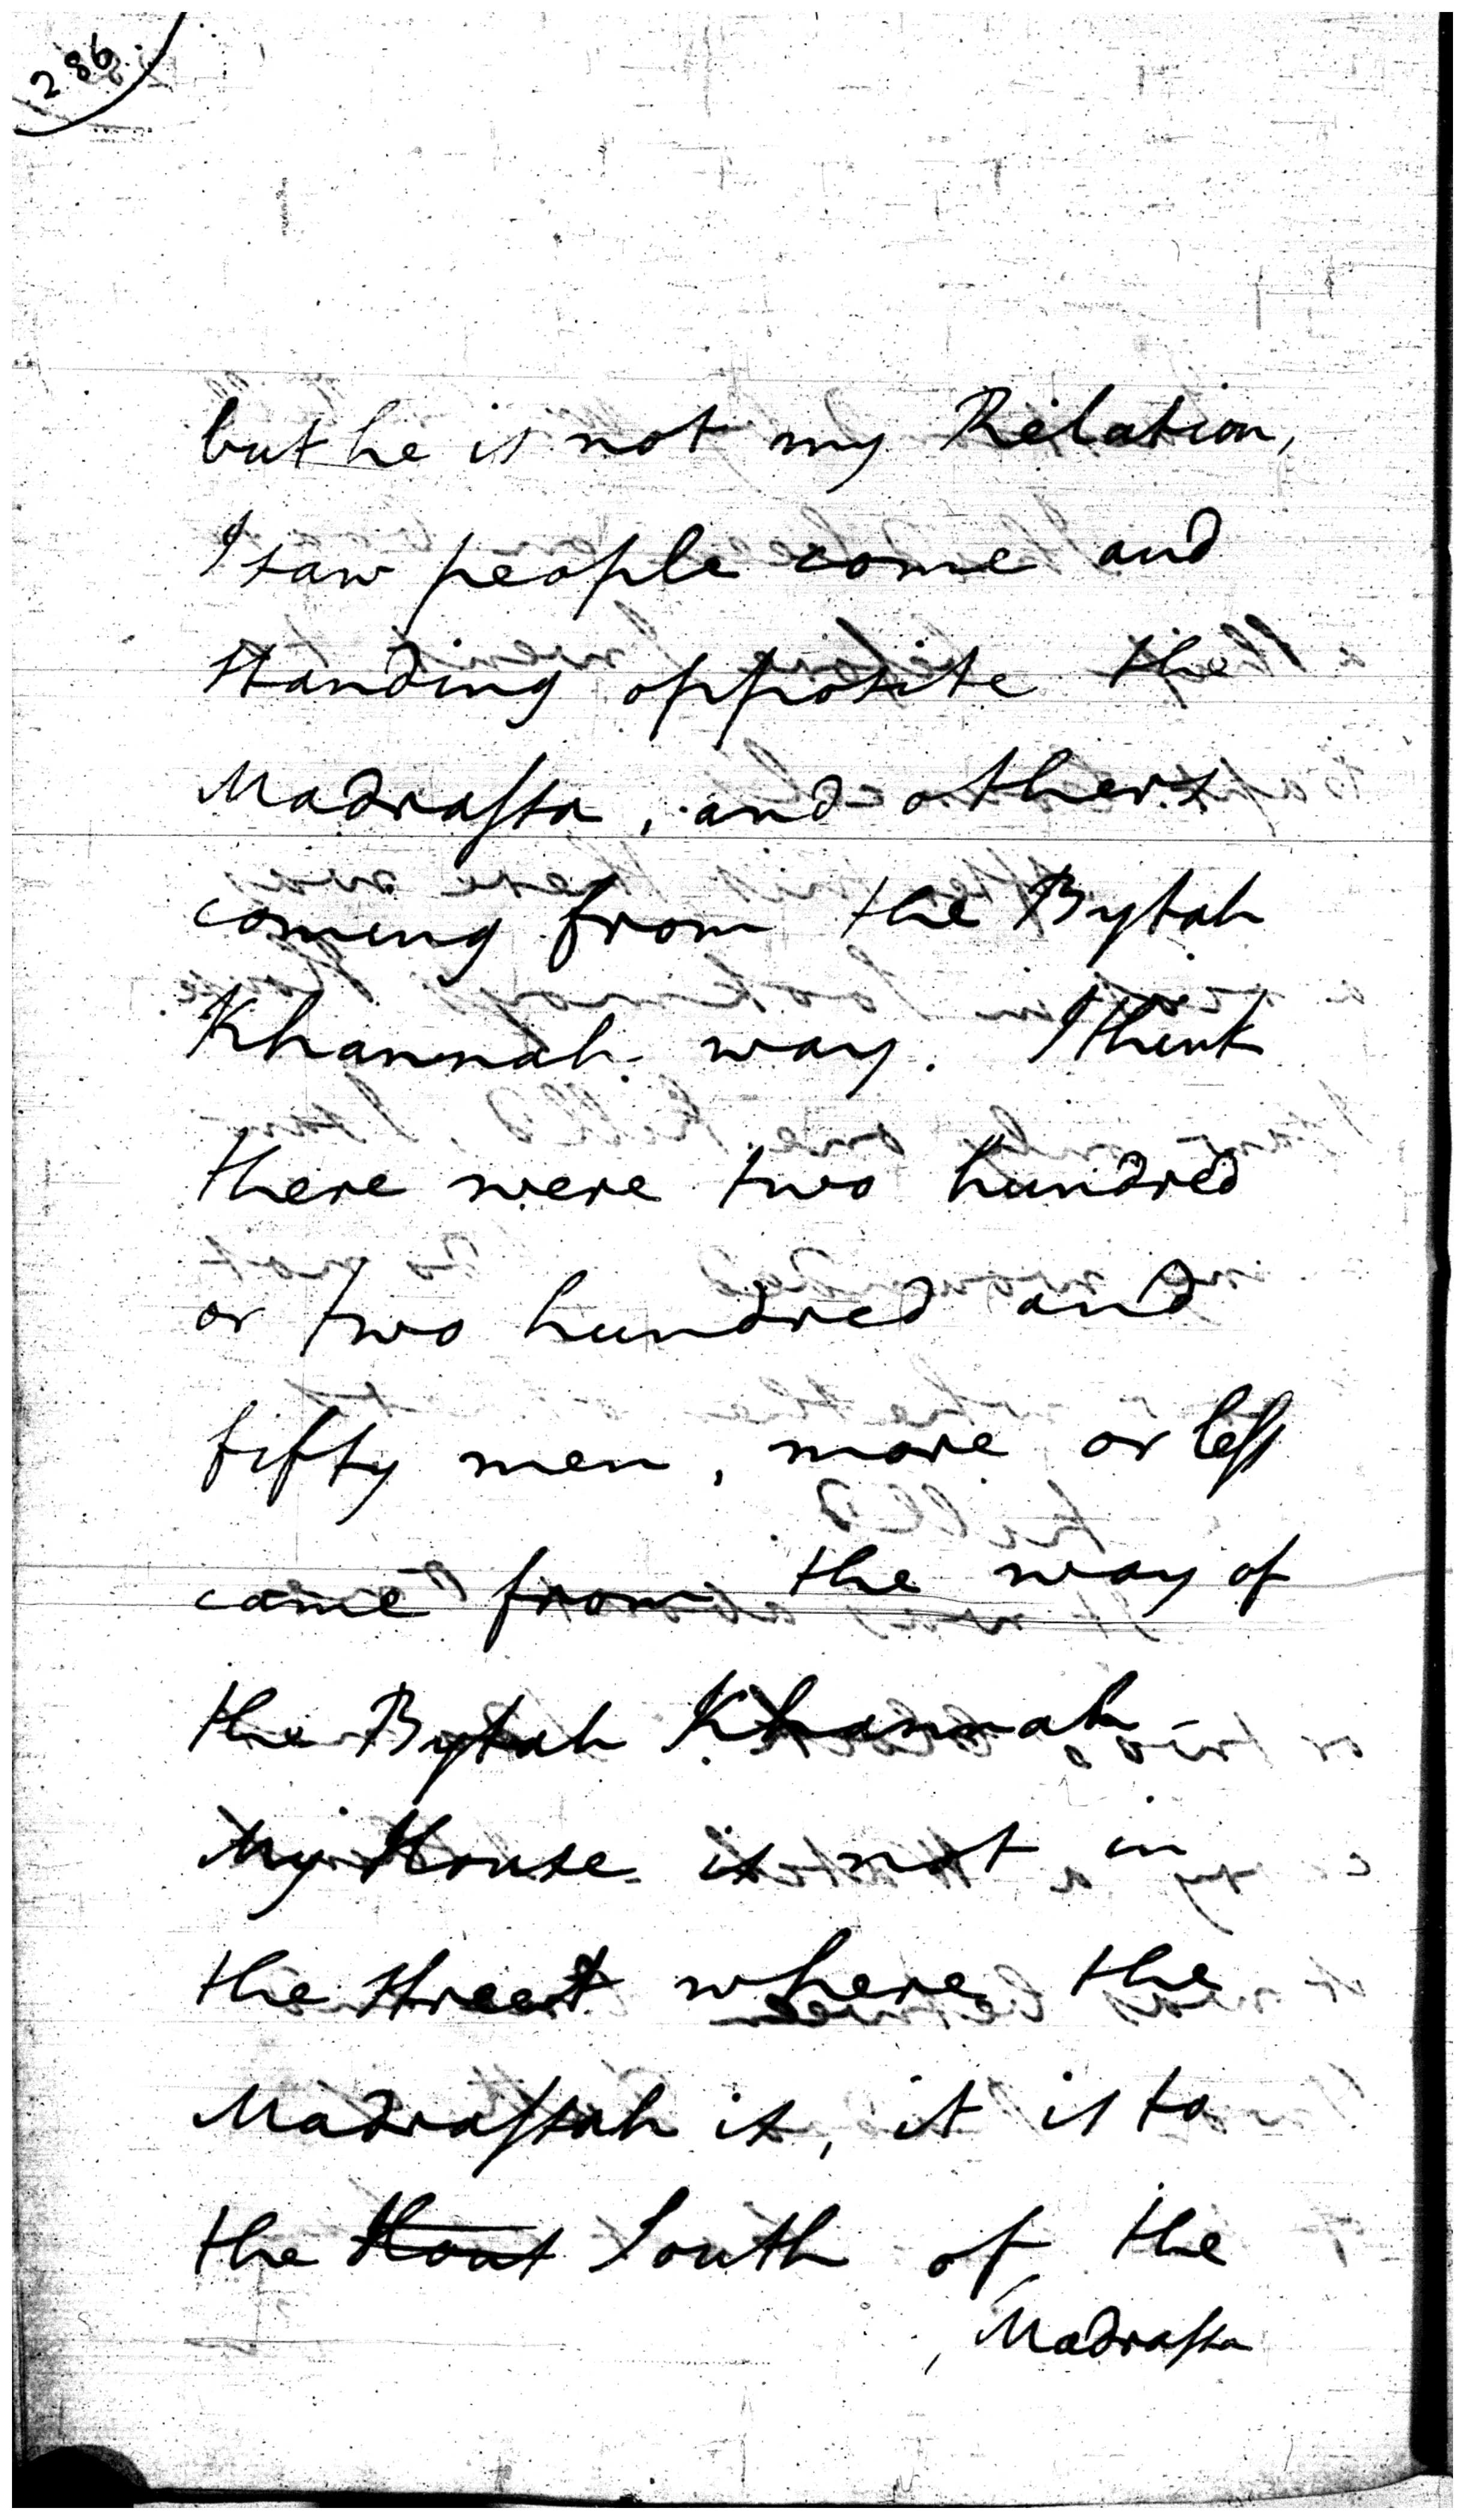 286
but he is not my Relation,
I saw people come and
standing opposite the
Madrassa, and others
coming from the Bytah
Khannah way. I think
there were two hundred
or two hundred and
fifty men, more or less
came from the way of
the Bytah Khannah -
My House is not in
the street where the
Madrassah is, it is to
the South of the
Madrassa